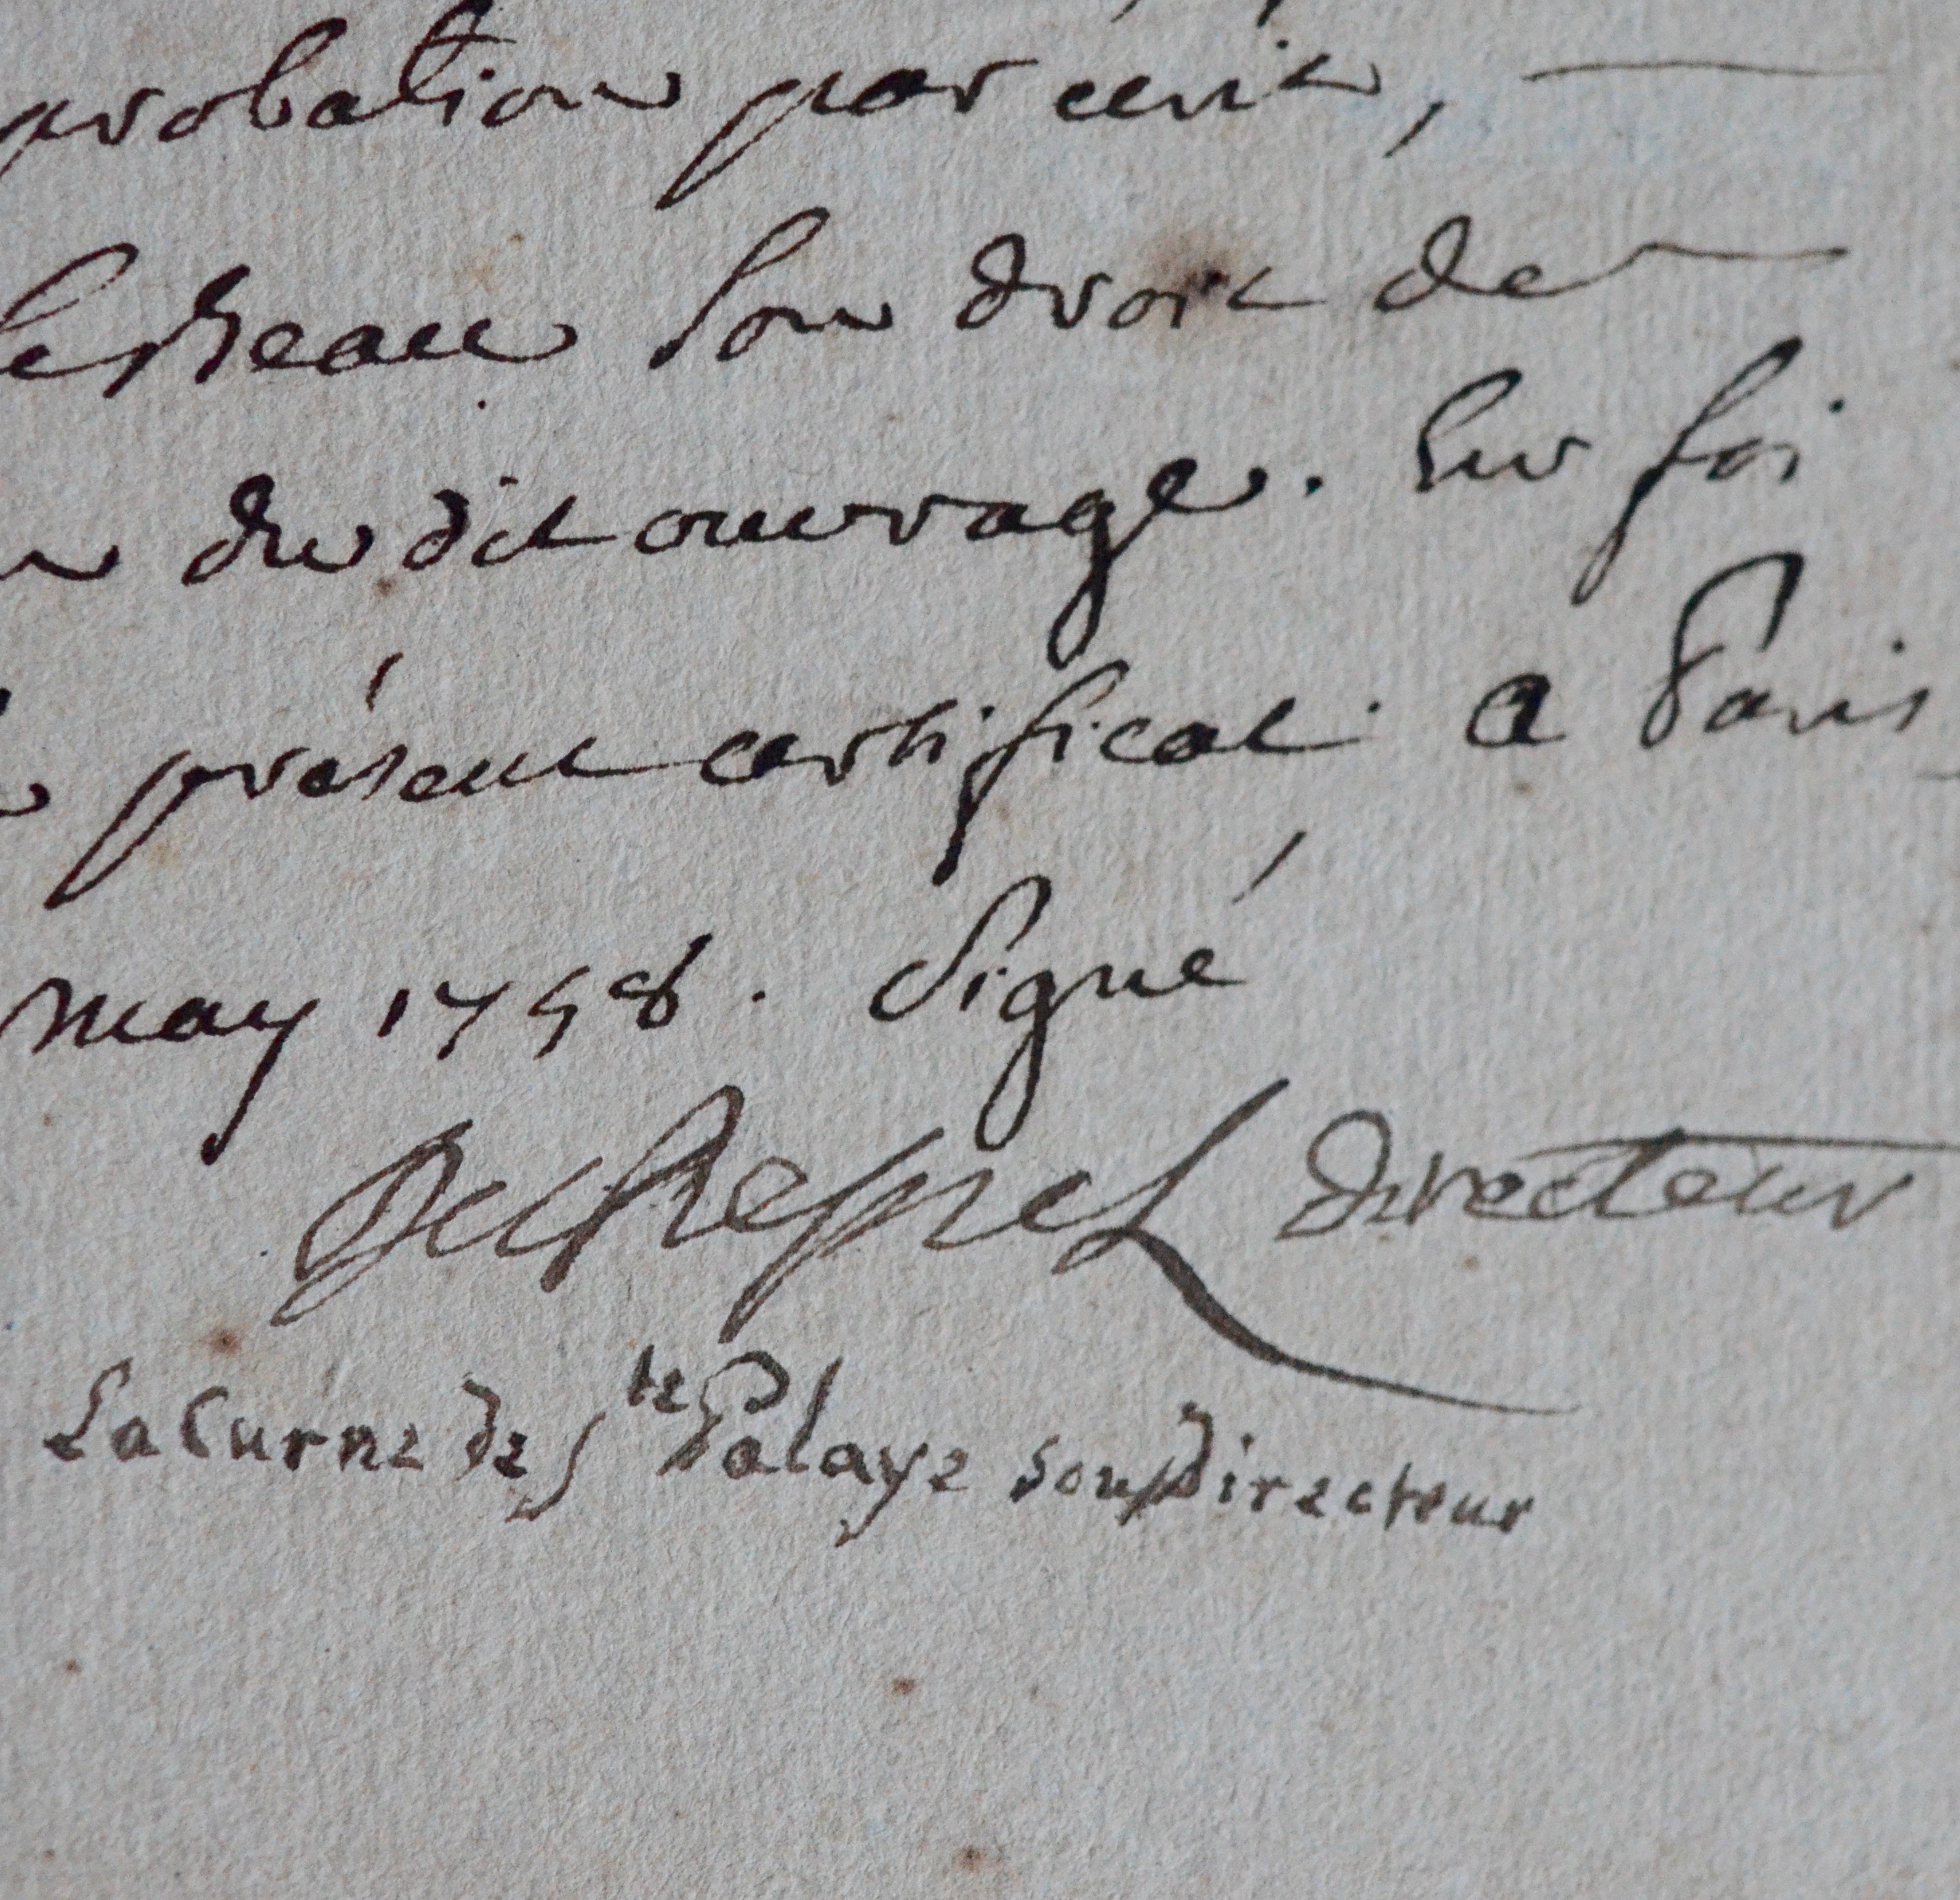 probation par écrit,
le Beau son droit de
du dit ouvrage. En foi
présent certificat. A Paris
may 1758. Signé
DuResnel directeur
LaCurne de Ste Palaye sousdirecteur